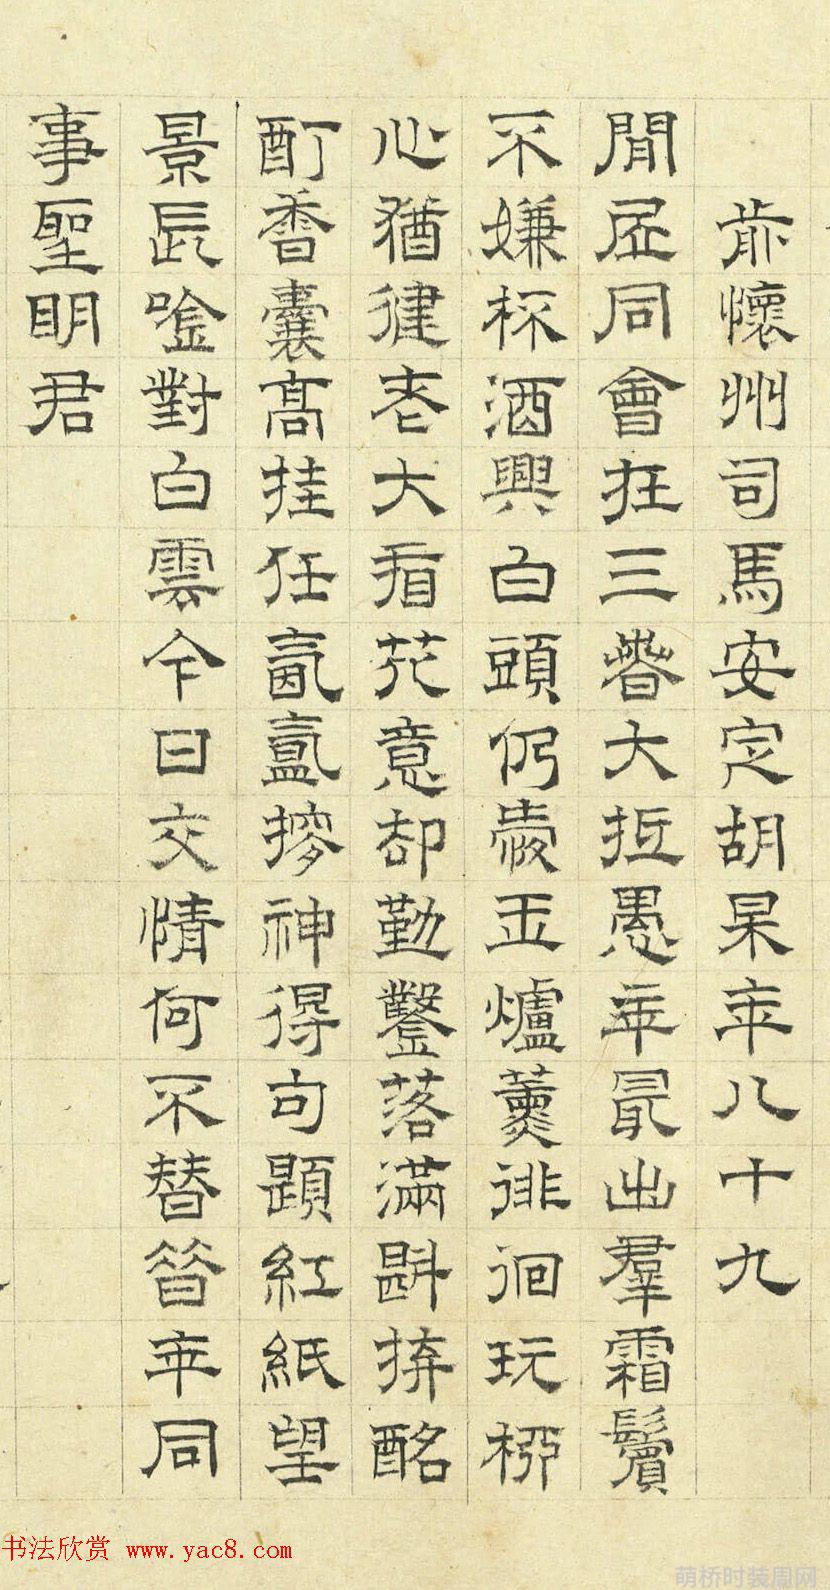 前懷州司馬安定胡杲年八十九
閒居同會在三春大抵愚年最出羣霜鬢
不嫌杯酒興白頭仍愛玉爐薰徘徊玩柳
心猶健老大看花意却勤鑿落滿斟拚酩
酊香囊高挂任氤氳搜神得句題紅紙望
景長吟對白雲今日交情何不替昔年同
事聖明君
书法欣赏 www.yac8.com
萌桥时装周网